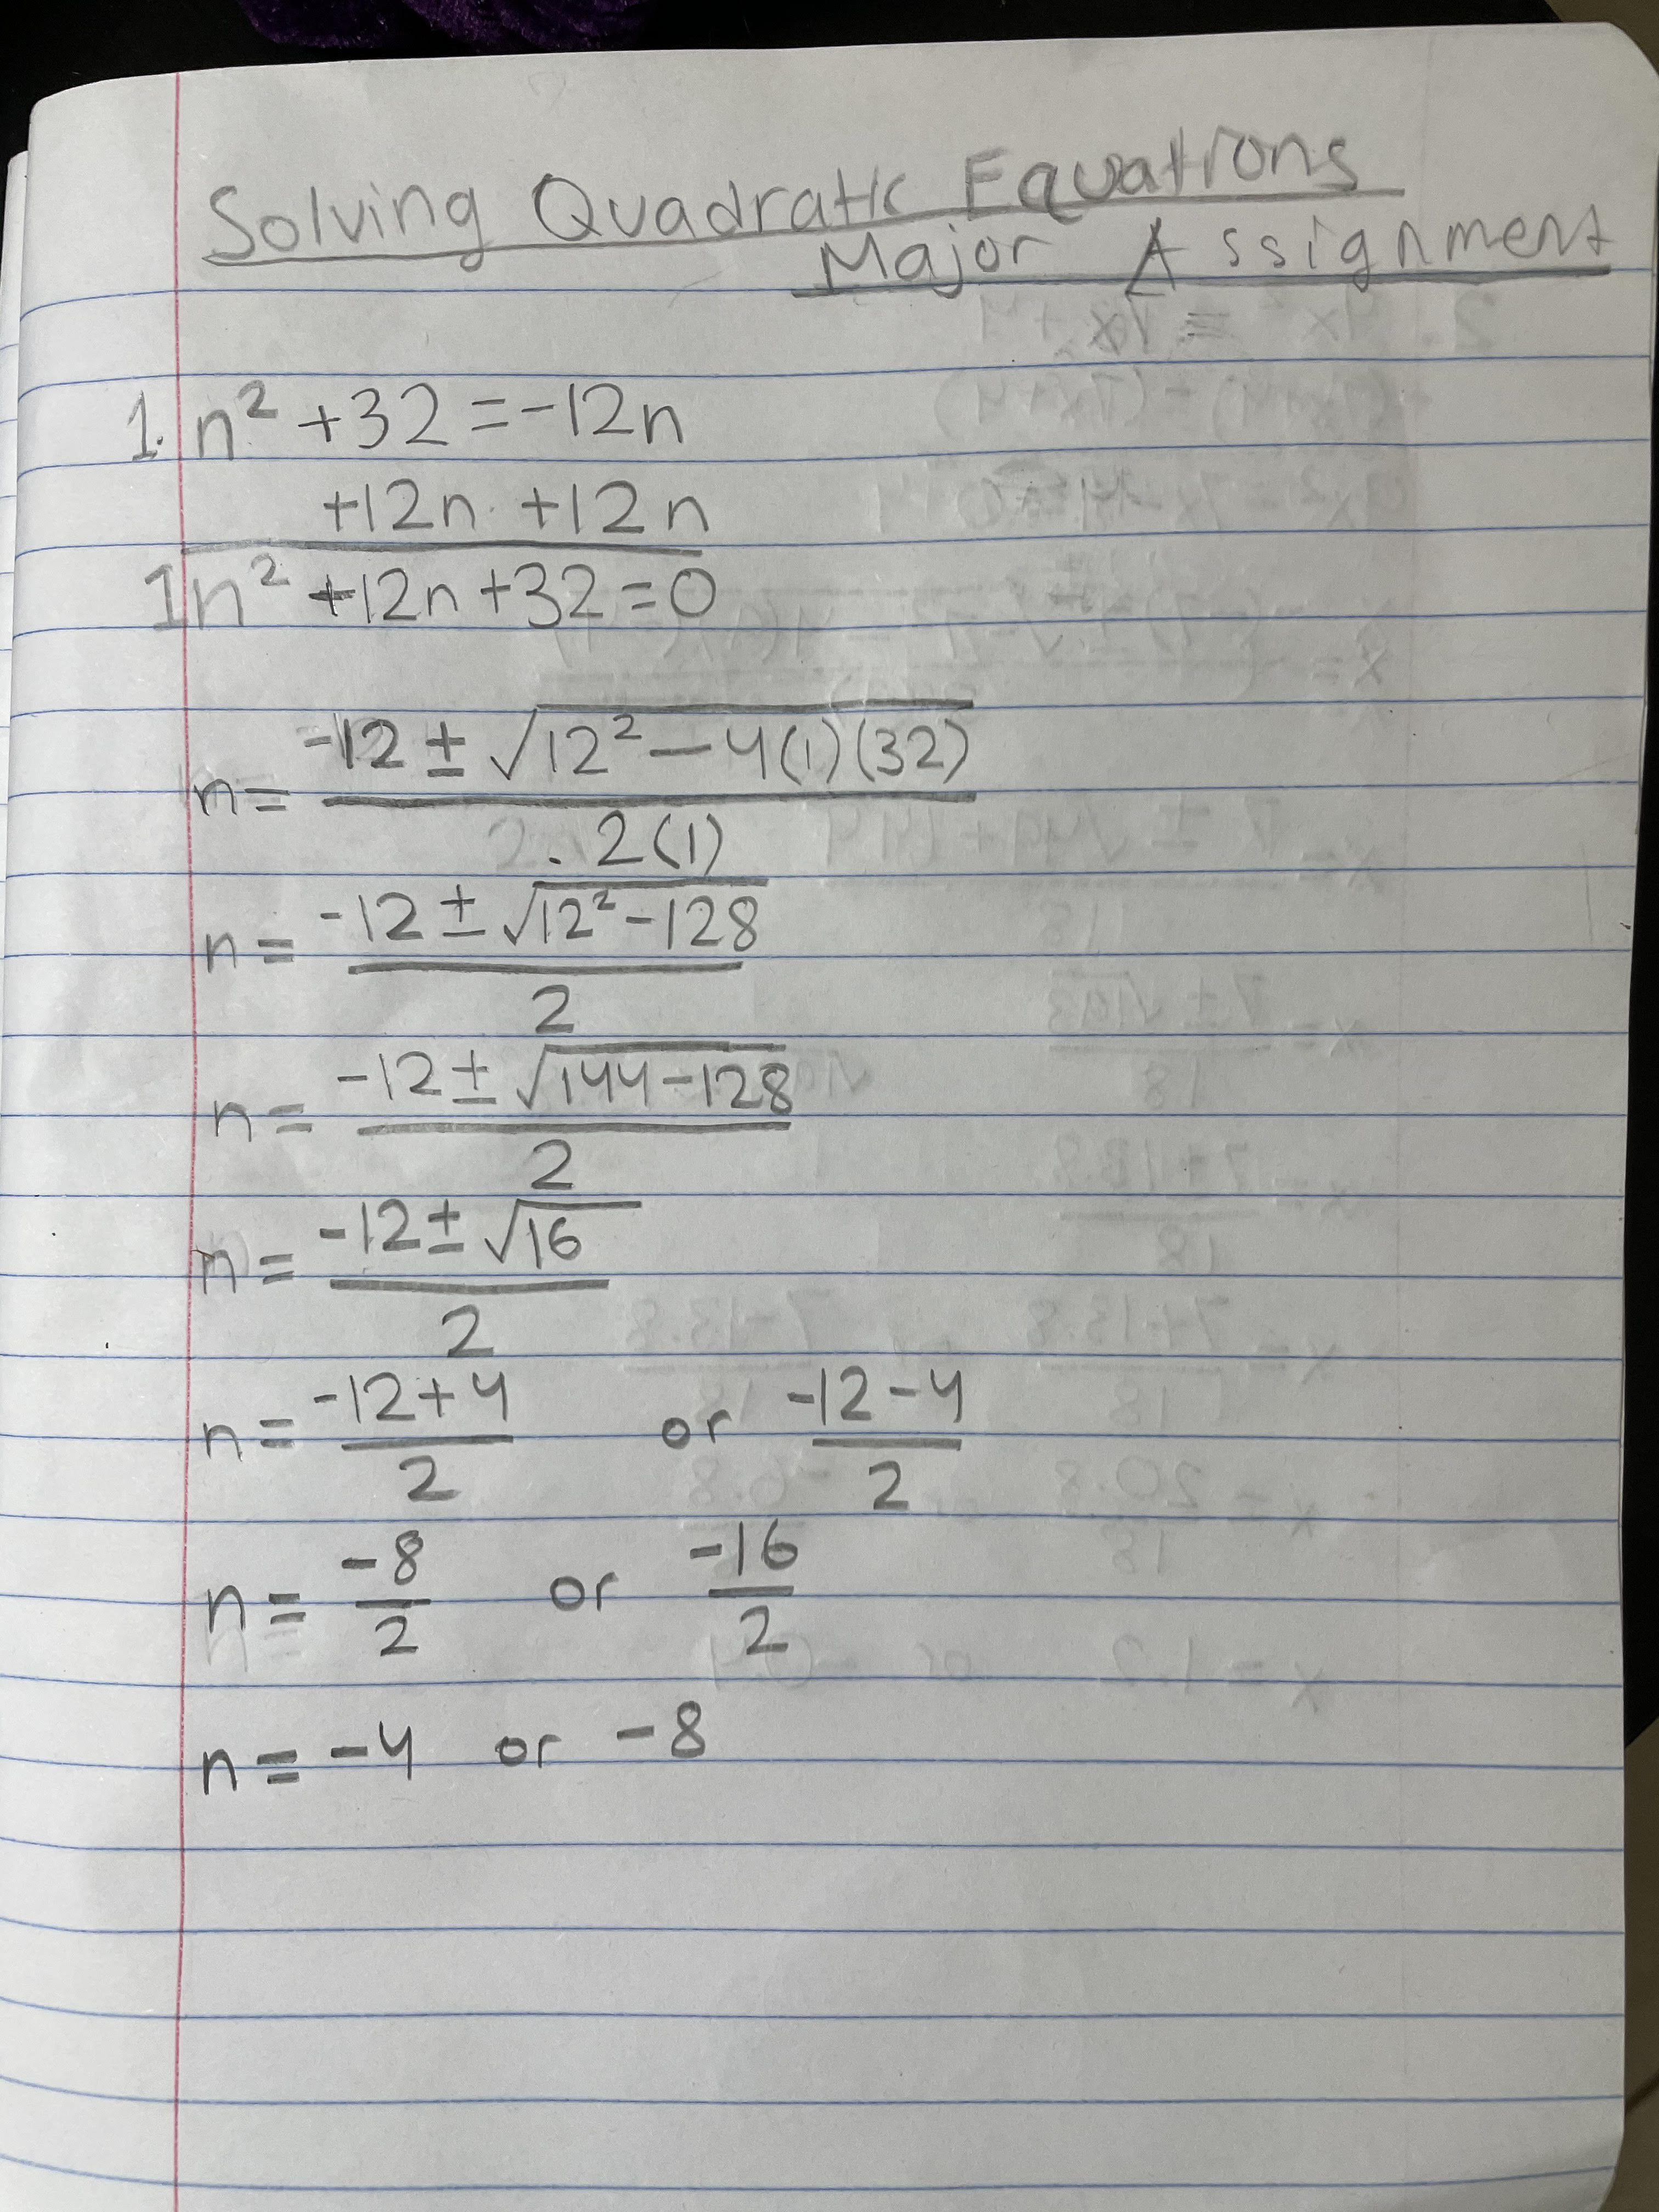 Solving Quadratic Equations
Major Assignment
1. n² +32 = -12n
+12n +12n
1n² +12n +32 = 0
n = -12 ± √12² - 4(1)(32)
2(1)
n = -12 ± √12² - 128
2
n = -12 ± √144 - 128
2
n = -12 ± √16
2
n = -12 + 4 or -12 - 4
2 2
n = -8 or -16
2 2
n = -4 or -8